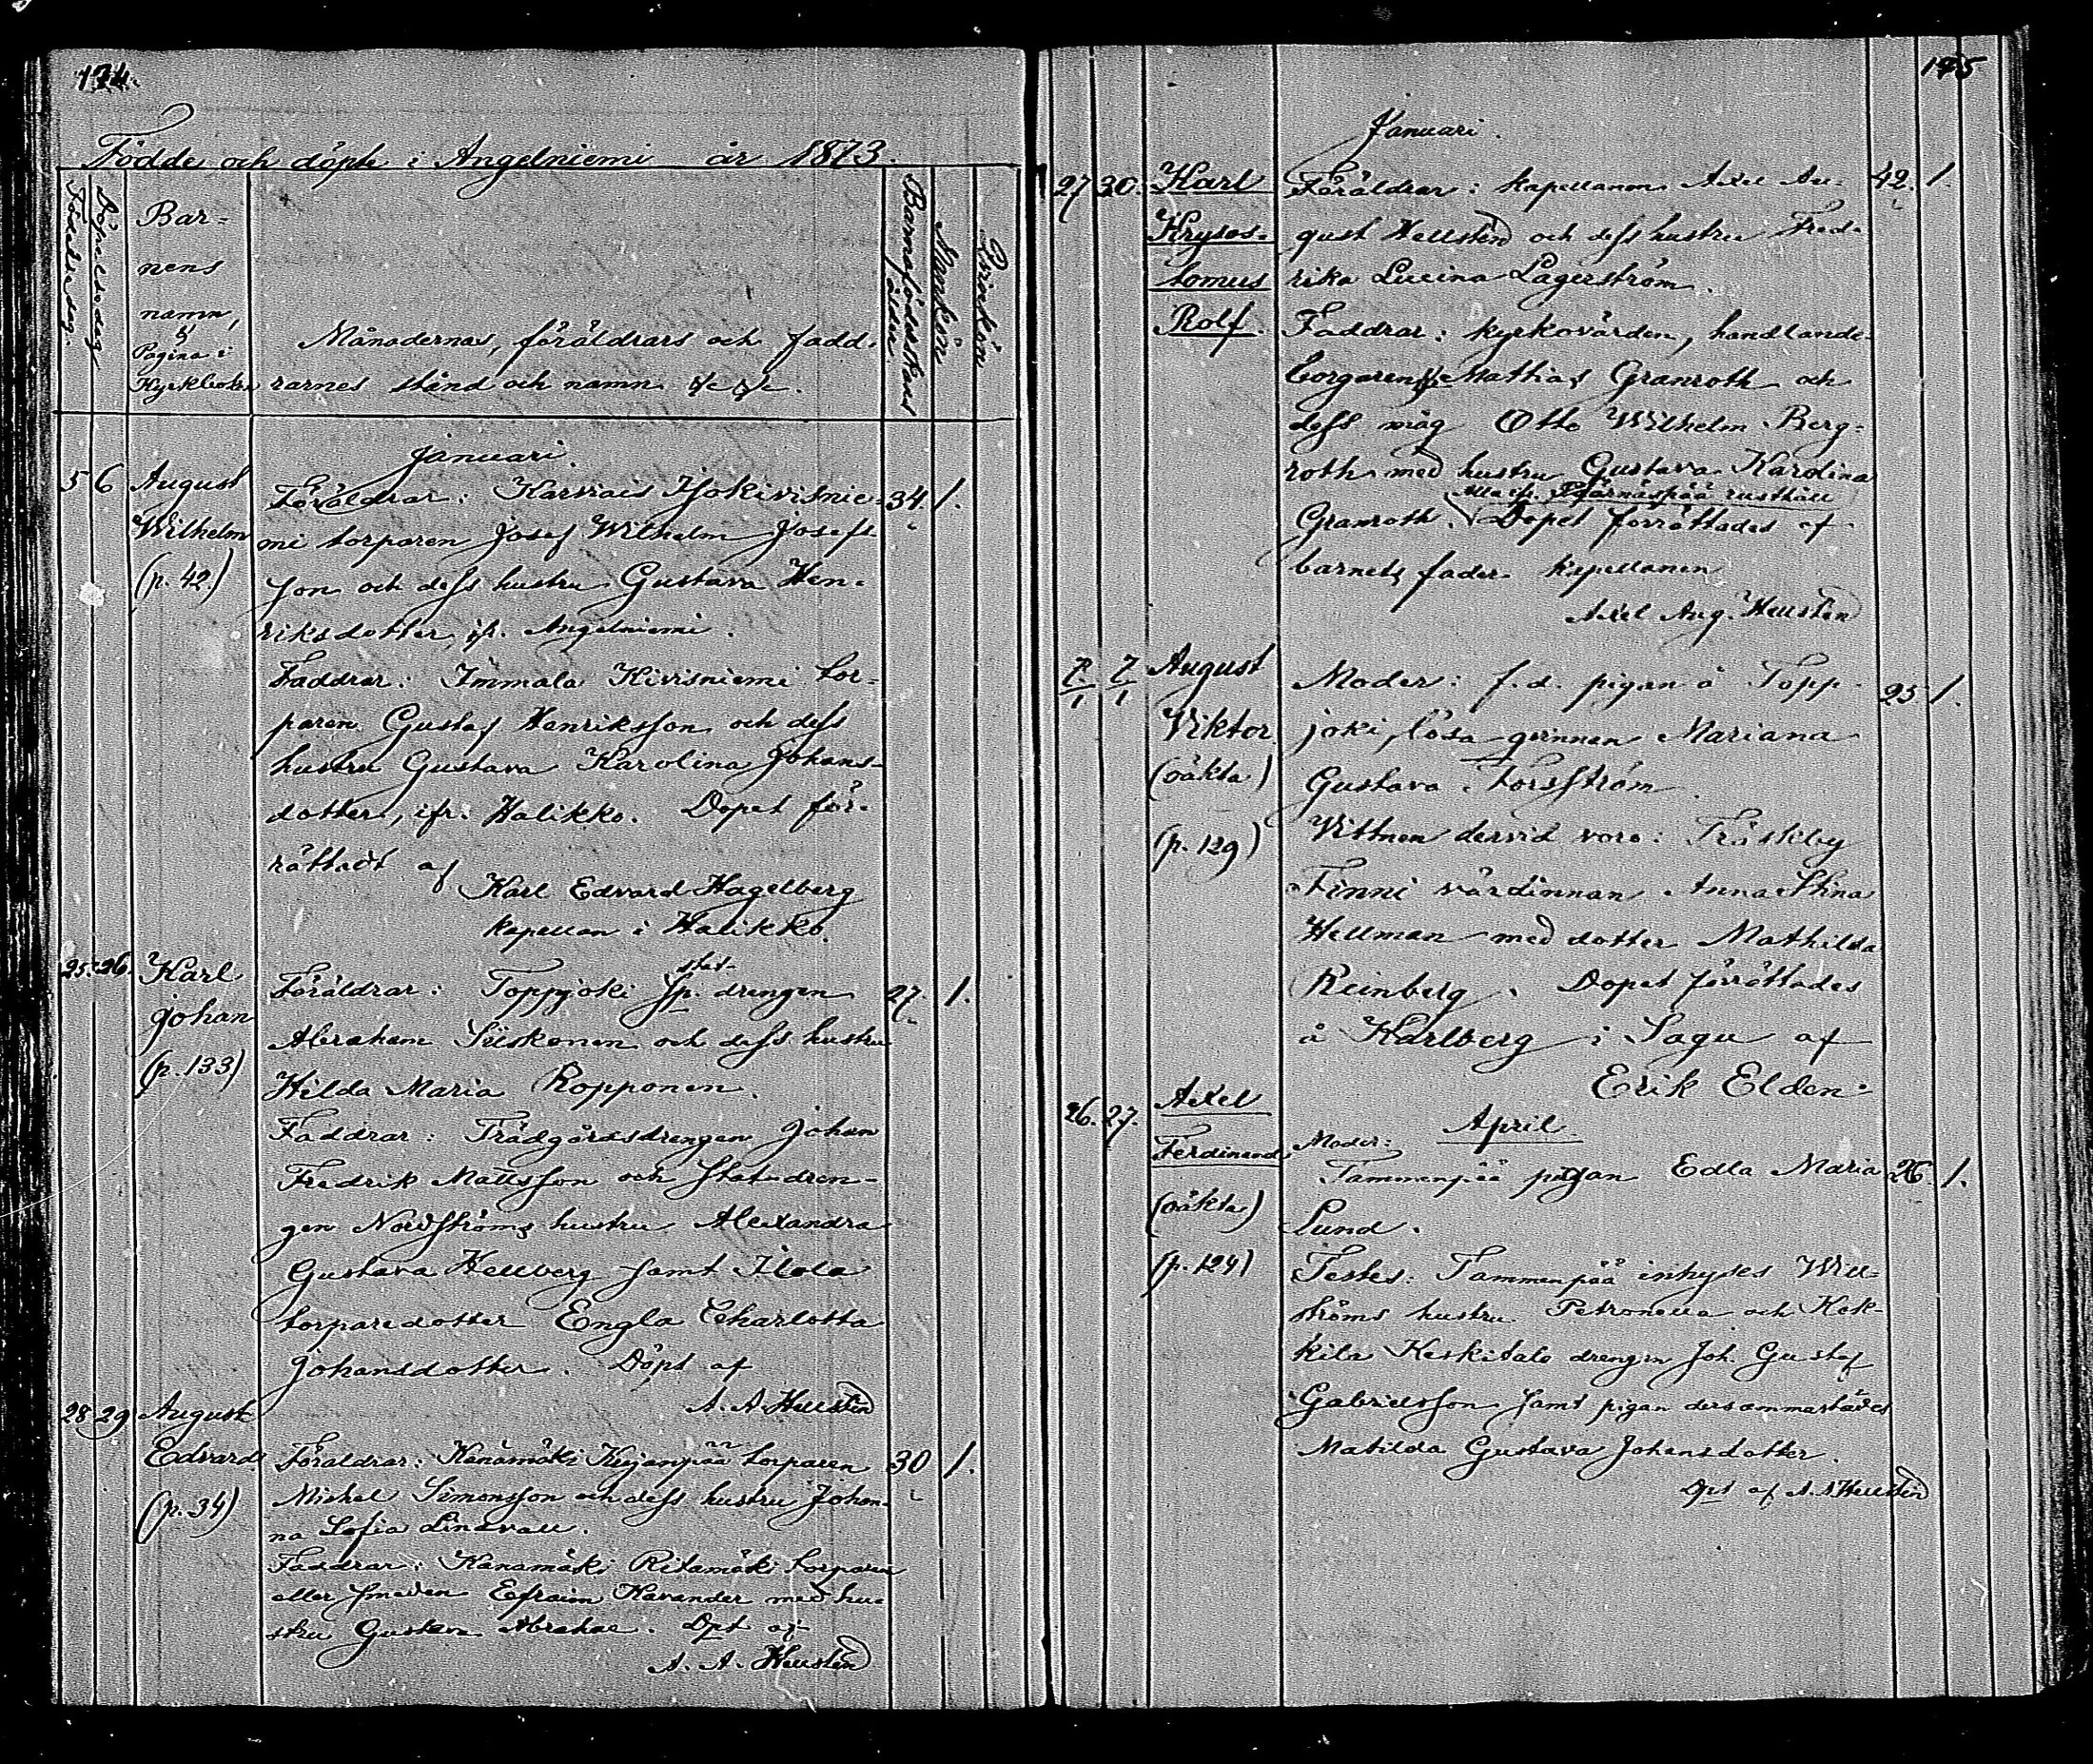 174.
Födde och döpte i Angelniemi år 1873.
Födelsedag.
Döpelsedag
Bar-
nens
namn,
&
Pagina i
Kyrkboken
Månadernas, föräldrars och fadd-
rarnes stånd och namn &c &c.
Barnaföderskans ålder
Mankön
Qvinkön
Januari.
5 6 August Föräldrar: Karviais Isokivisnie- 34. 1.
Wilhelm mi torparen Josef Wilhelm Josefs-
(p. 42.) son och dess hustru Gustava Hen-
riksdotter, ifr. Angelniemi.
Faddrar: Immala Kivisniemi tor-
paren Gustaf Henriksson och dess
hustru Gustava Karolina Johans-
dotter, ifr. Halikko. Dopet för-
rättadt af
Karl Edvard Hagelberg
kapellan i Halikko.
25. 26. Karl Föräldrar: Toppjoki stat- drengen 27. 1.
Johan Abraham Siiskonen och dess hustru
(p. 133) Hilda Maria Ropponen.
Faddrar: Trädgårdsdrengen Johan
Fredrik Mattsson och statsdren-
gen Nordströms hustru Alexandra
Gustava Hellberg samt Ilola
torparedotter Engla Charlotta
Johansdotter. Döpt af
A. A. Hellstén
28 29 August
Edvard Föräldrar: Kanamäki Kujanpää torparen 30 1.
(p. 34) Mickel Simonsson och dess hustru Johan-
na Sofia Lindvall.
Faddrar: Kanamäki Ritamäki torparen
eller smeden Efraim Kavander med hu-
stru Gustava Abrahae. Dpt af
A. A. Hellstén
175
Januari.
27 30. Karl Föräldrar: kapellanen Axel Au- 42. 1.
Krysos- gust Hellstén och dess hustru Fred-
tomus rika Lucina Lagerström.
Rolf. Faddrar: kyrkovärden, handlande-
borgaren Mathias Granroth och
dess måg Otto Wilhelm Berg-
roth med hustru Gustava Karolina
Alla ifr. rusthåll
Granroth. Dopet förrättades af
barnets fader kapellanen
Axel Aug. Hellstén
7/1 7/1 August Moder: f. d. pigan å Topp- 25 1.
Viktor joki, lösa qvinnan Mariana
(oäkta) Gustava Forsström.
(p. 129) Vittnen dervid voro: Träskby
Finni värdinnan Anna Stina
Hellman med dotter Mathilda
Reinberg. Dopet förrättades
å Karlberg i Sagu af
Erik Elden.
April
26. 27. Axel
Ferdinand Moder: Tammenpää pigan Edla Maria 26 1.
(oäkta) Lund.
(p. 124) Testes: Tammenpää inhyses Will-
ströms hustru Petronella och Kok-
kila Keskitalo drengen Joh. Gustaf
Gabrielsson samt pigan dersammastädes
Matilda Gustava Johansdotter.
Dpt af A. A Hellstén